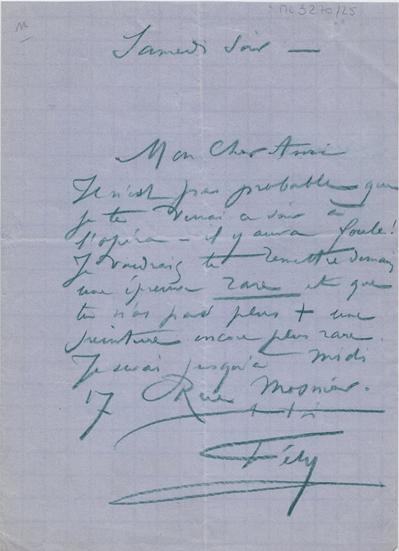 ML 3270/25
Samedi Soir —
Mon Cher Ami
Il n'est pas probable que
je te verrai ce soir à
l'opéra — il y aura foule!
Je voudrais te remettre demain
une épreuve rare et que
tu n'as pas plus + une
peinture encore plus rare.
Je serai jusqu'à midi
17 Rue Mosnier.
Fély